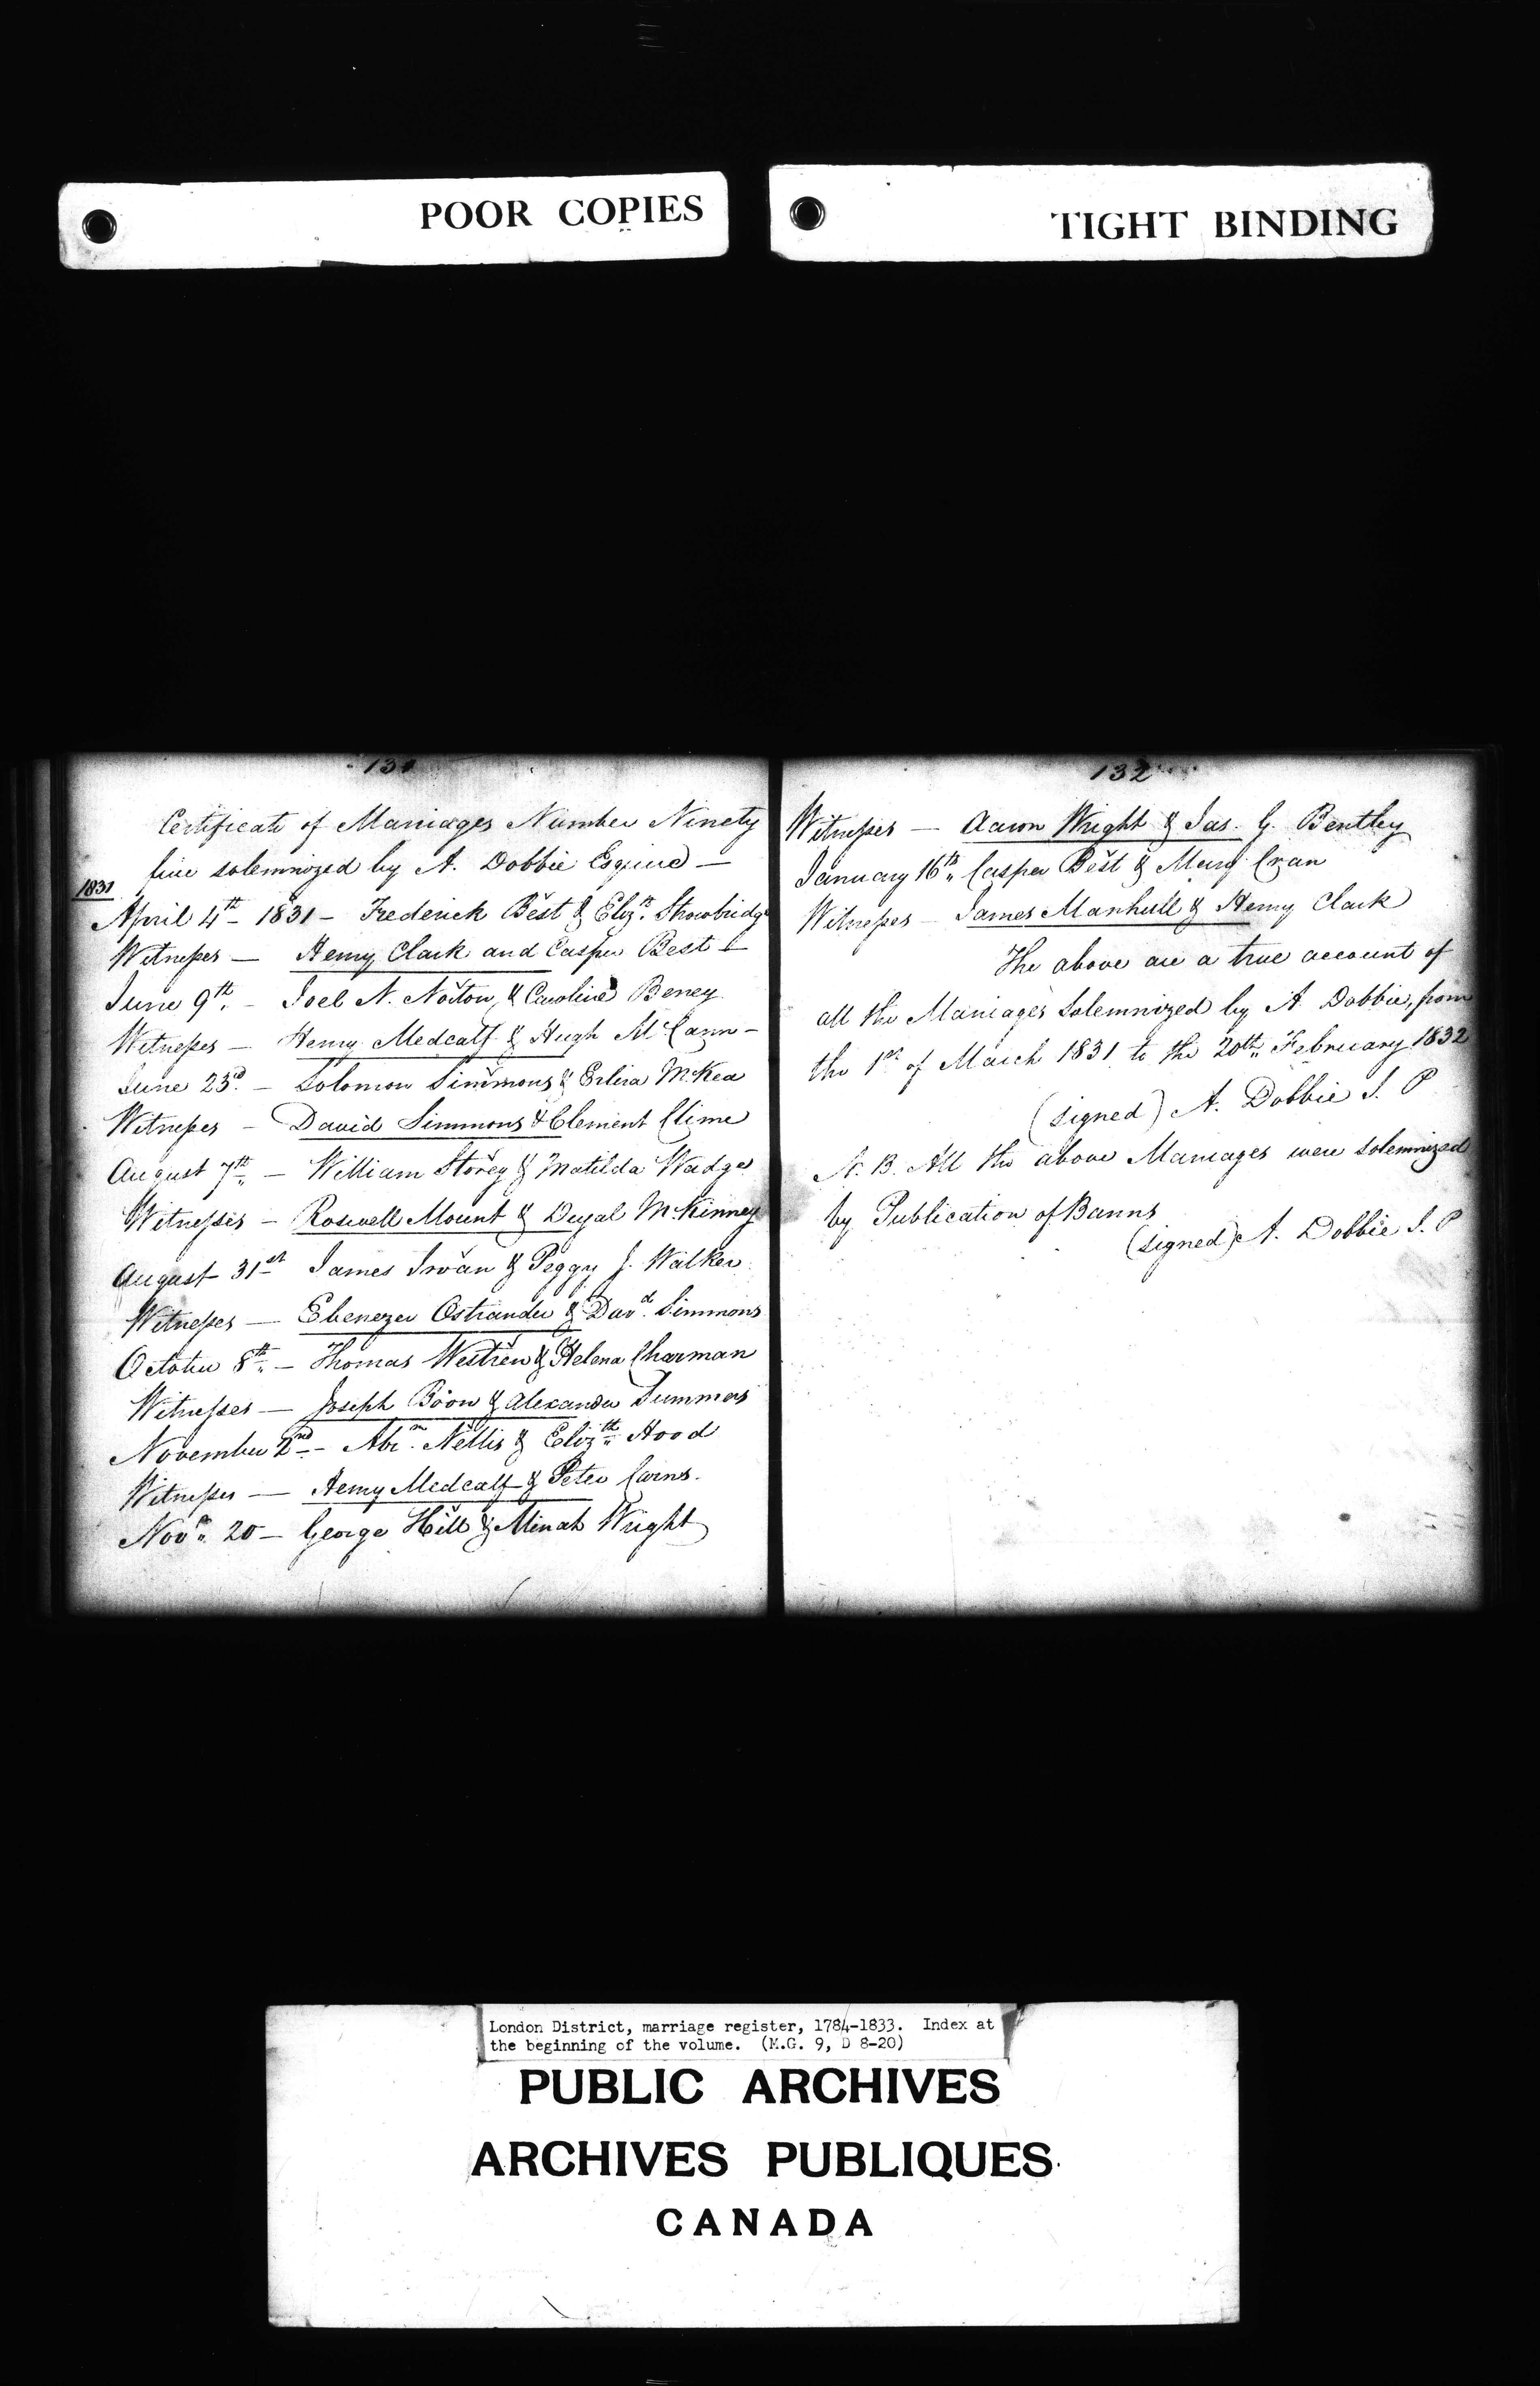 POOR COPIES
TIGHT BINDING
131
Certificate of Marriages Number Ninety
five solemnized by A. Dobbie Esquire —
1831
April 4th 1831 — Frederick Best & Elizth. Showbridge
Witnesses — Henry Clark and Casper Best
June 9th. — Joel N. Norton & Caroline Beney
Witnesses — Henry Medcalf & Hugh McCann —
June 23d. — Solomon Simmons & Erlira McKea
Witnesses — David Simmons & Clement Clime
August 7th. — William Storey & Matilda Wadge
Witnesses — Roswell Mount & Dugal McKinney
August 31st James Irvan & Peggy J. Walker
Witnesses — Ebenezer Ostrander & Davd. Simmons
October 8th. — Thomas Westren & Helena Charman
Witnesses — Joseph Boon & Alexander Summers
November 2nd — Abrm. Nellis & Elizth. Hood
Witnesses — Henry Medcalf & Peter Carns.
Novr. 20 — George Hill & Minah Wright
132
Witnesses — Aaron Wright & Jas. G. Bentley
January 16th. Casper Best & Mary Cran
Witnesses — James Manhull & Henry Clark
The above are a true account of
all the Marriages Solemnized by A Dobbie, from
the 1st of March 1831 to the 20th. February 1832
(signed) A. Dobbie J. P
N. B. All the above Marriages were solemnized
by Publication of Banns
(signed) A. Dobbie J. P
London District, marriage register, 1784-1833. Index at
the beginning of the volume. (M.G. 9, D 8-20)
PUBLIC ARCHIVES
ARCHIVES PUBLIQUES
CANADA